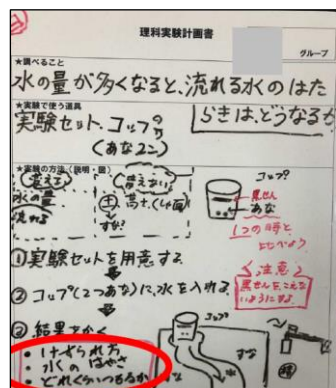 理科実験計画書
グループ
★調べること
水の量が多くなると、流れる水のはた
らきは、どうなるか
★実験で使う道具
実験セット、コップ
(あな2こ)
★実験の方法(説明・図)
変える
水の量
変えない
土
高さ、(しゃ面)
すな?
コップ
黒せん
あな
1つの時と
くらべよう
①実験セットを用意する
②コップ(2つあな)に、水を入れる
注意
黒せんをこえな
いようにする
③結果をかく
・けずられ方
・水のはやさ
・どれくらいつもるか
コップ
すな